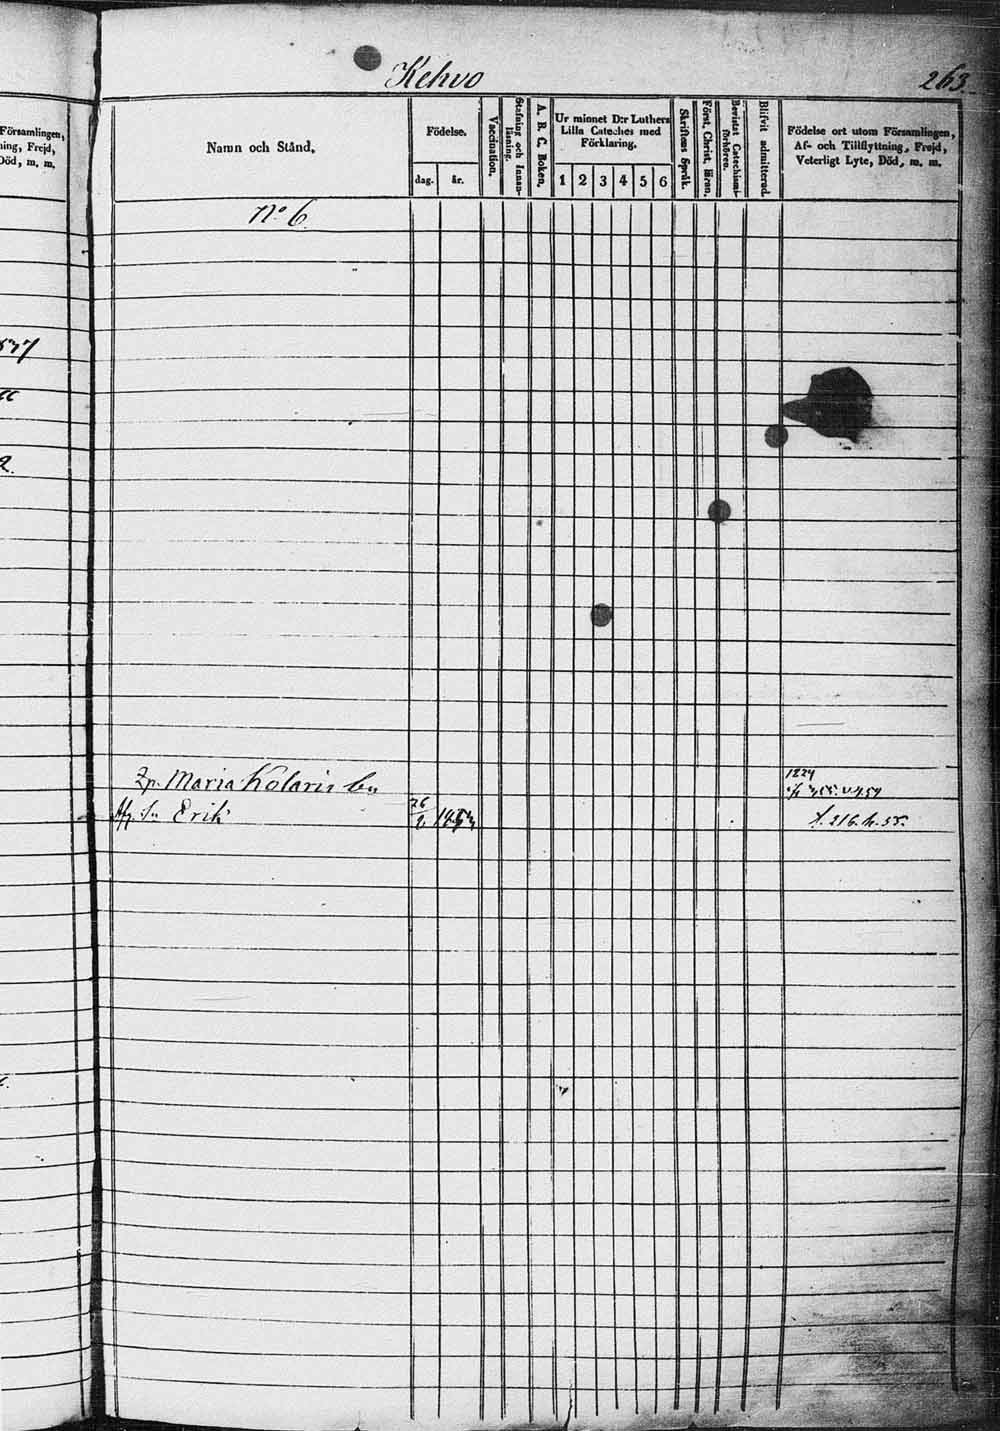 Kehvo
263.
Församlingen,
ning, Frejd,
Död, m. m.
Namn och Stånd,
Födelse.
dag.
år.
Vaccination.
Stafning och Innan-
läsning.
A. B. C. Boken,
Ur minnet D:r Luthers
Lilla Cateches med
Förklaring.
1 2 3 4 5 6
Skriftens Språk.
Först. Christ. lären.
Bevistat Catechismi-
förhören.
Blifvit admitterad.
Födelse ort utom Församlingen,
Af- och Tillflyttning, Frejd,
Veterligt Lyte, Död, m. m.
No 6.
Maria Kolarin
1824
Erik
26
f. 216. h. 55.